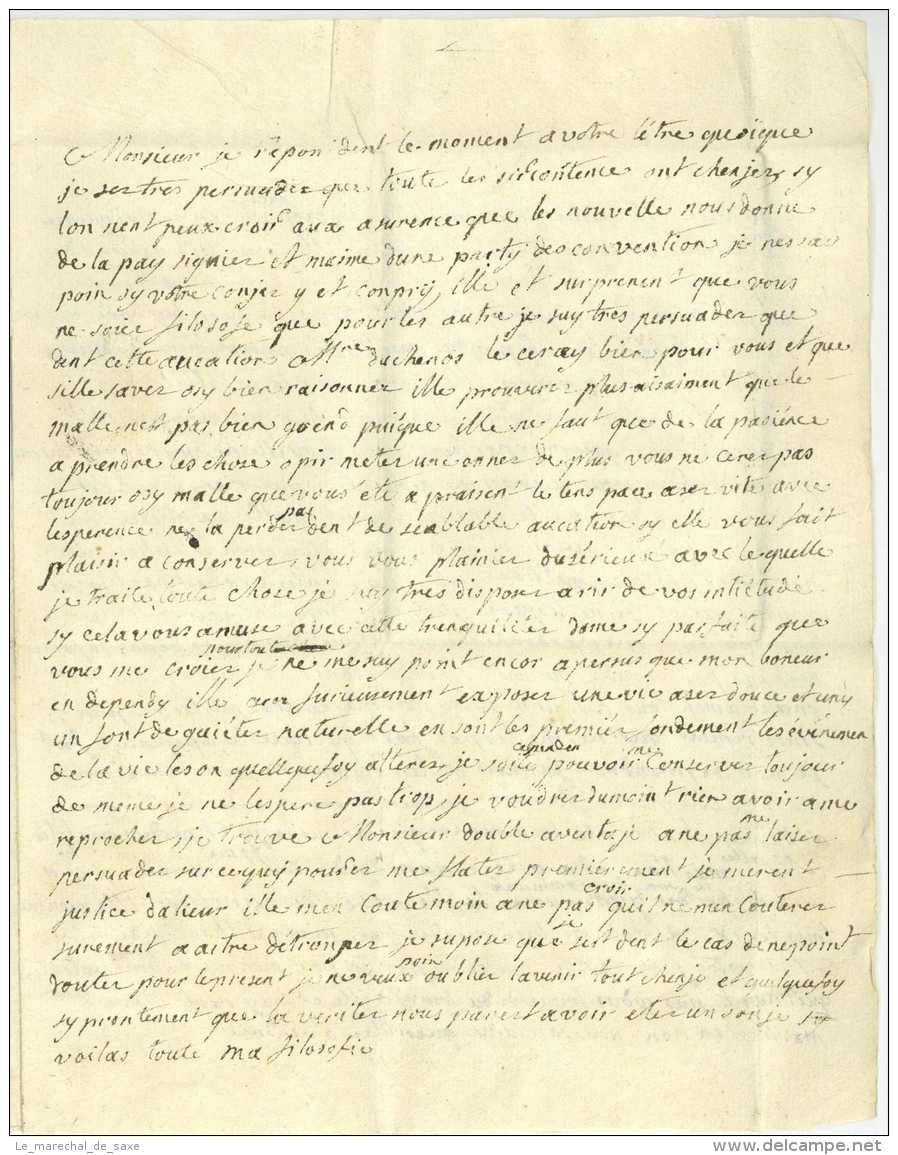 Monsieur je repon dent le moment a votre lettre quoique
je ser tres persuader que toute les sircontence ont chenjer sy
lon nent peux croir aux asurence que les nouvelle nous donne
de la pay signier et maime dune party des convention je nessas
poin sy votre conjer y et conpry, ille et surprenent que vous
ne soier filosofe que pour les autre je suy tres persuader que
dent cette aucation Mre duchenos le ceray bien pour vous et que
sille saver osy bien raisonner ille prouverer plus aisaiment que le
malle nest pas bien grend puisque ille ne faut que de la pasience
a prendre les chose o pir meter une onner de plus vous ne cerer pas
toujour osy malle que vous ete a praisent le tens pace aser vite avec
lesperence ne la perder pas dent de senblable aucation sy elle vous fait
plaisir a conserver, vous vous plainier du serieux avec le quelle
je traite toute chose je suy tres disposer a rir de vos intietude
sy cela vous amuse avec cette trenquiliter dame sy parfaite que
vous me croier je ne me suy point encor apersus que mon boneur
pour tout
en dependy ille aser furieusement exposer une vie aser douce et uny
un font de gaiéter naturelle en sont les premier fondement les événemen
de la vie les on quelquefoy alterer je pouvoir me Conserver toujour
cependen
de meme je ne lespere pas trop, je voudrer dumoint rien avoir a me
reprocher, je trouve Monsieur double aventaje a ne pas me laiser
persuader sur ce quy pourer me flater premiérement je me rent
justice dalieur ille men Coute moin a ne pas croir quil ne men Couterer
surement a aitre détronper je supose que je sest dent le cas de ne point
douter pour le present je ne veux poin oublier lavenir tout chenje et quelquefoy
sy prontement que la veriter nous paret avoir eter un sonje
voilas toute ma filosofie
Le_marechal_de_saxe
www.delcampe.net